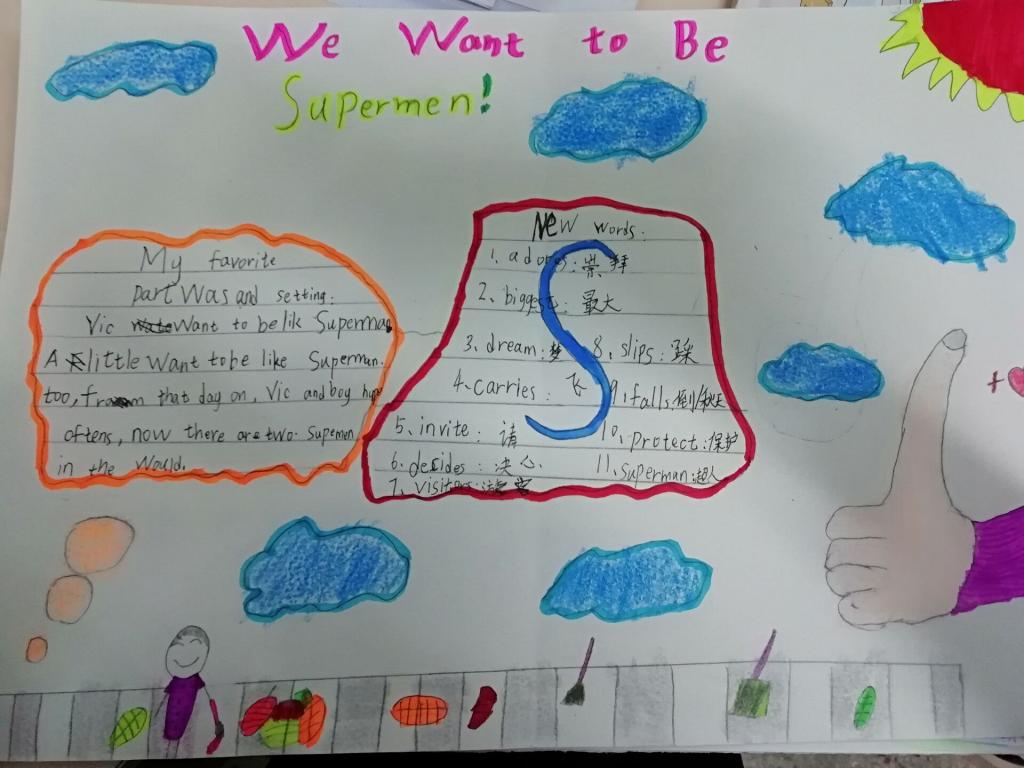 We Want to Be
Supermen!
My favorite
part Was and setting:
Vic Want to be lik Superman
A little Want to be like Superman.
too, from that day on, Vic and boy hope
oftens, now there are two. Supemen
in the Would.
New words:
1. adores: 崇拜
2. biggest: 最大
3. dream: 梦
4. carries: 飞
5. invite: 请
6. decides: 决心
7. visitors:
8. slips: 踩
9. falls: 倒/秋天
10. protect: 保护
11. superman: 超人
S
+